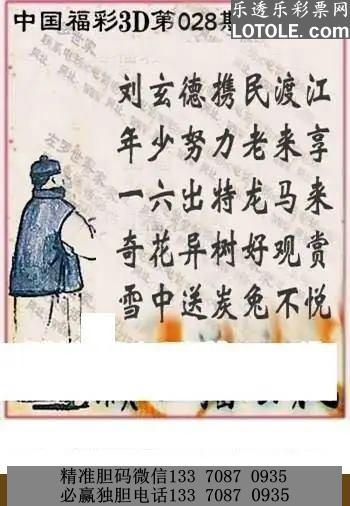 乐透乐彩票网
LOTOLE.COM
中国福彩3D第028期
刘玄德携民渡江
年少努力老来享
一六出特龙马来
奇花异树好观赏
雪中送炭兔不悦
精准胆码微信133 7087 0935
必赢独胆电话133 7087 0935